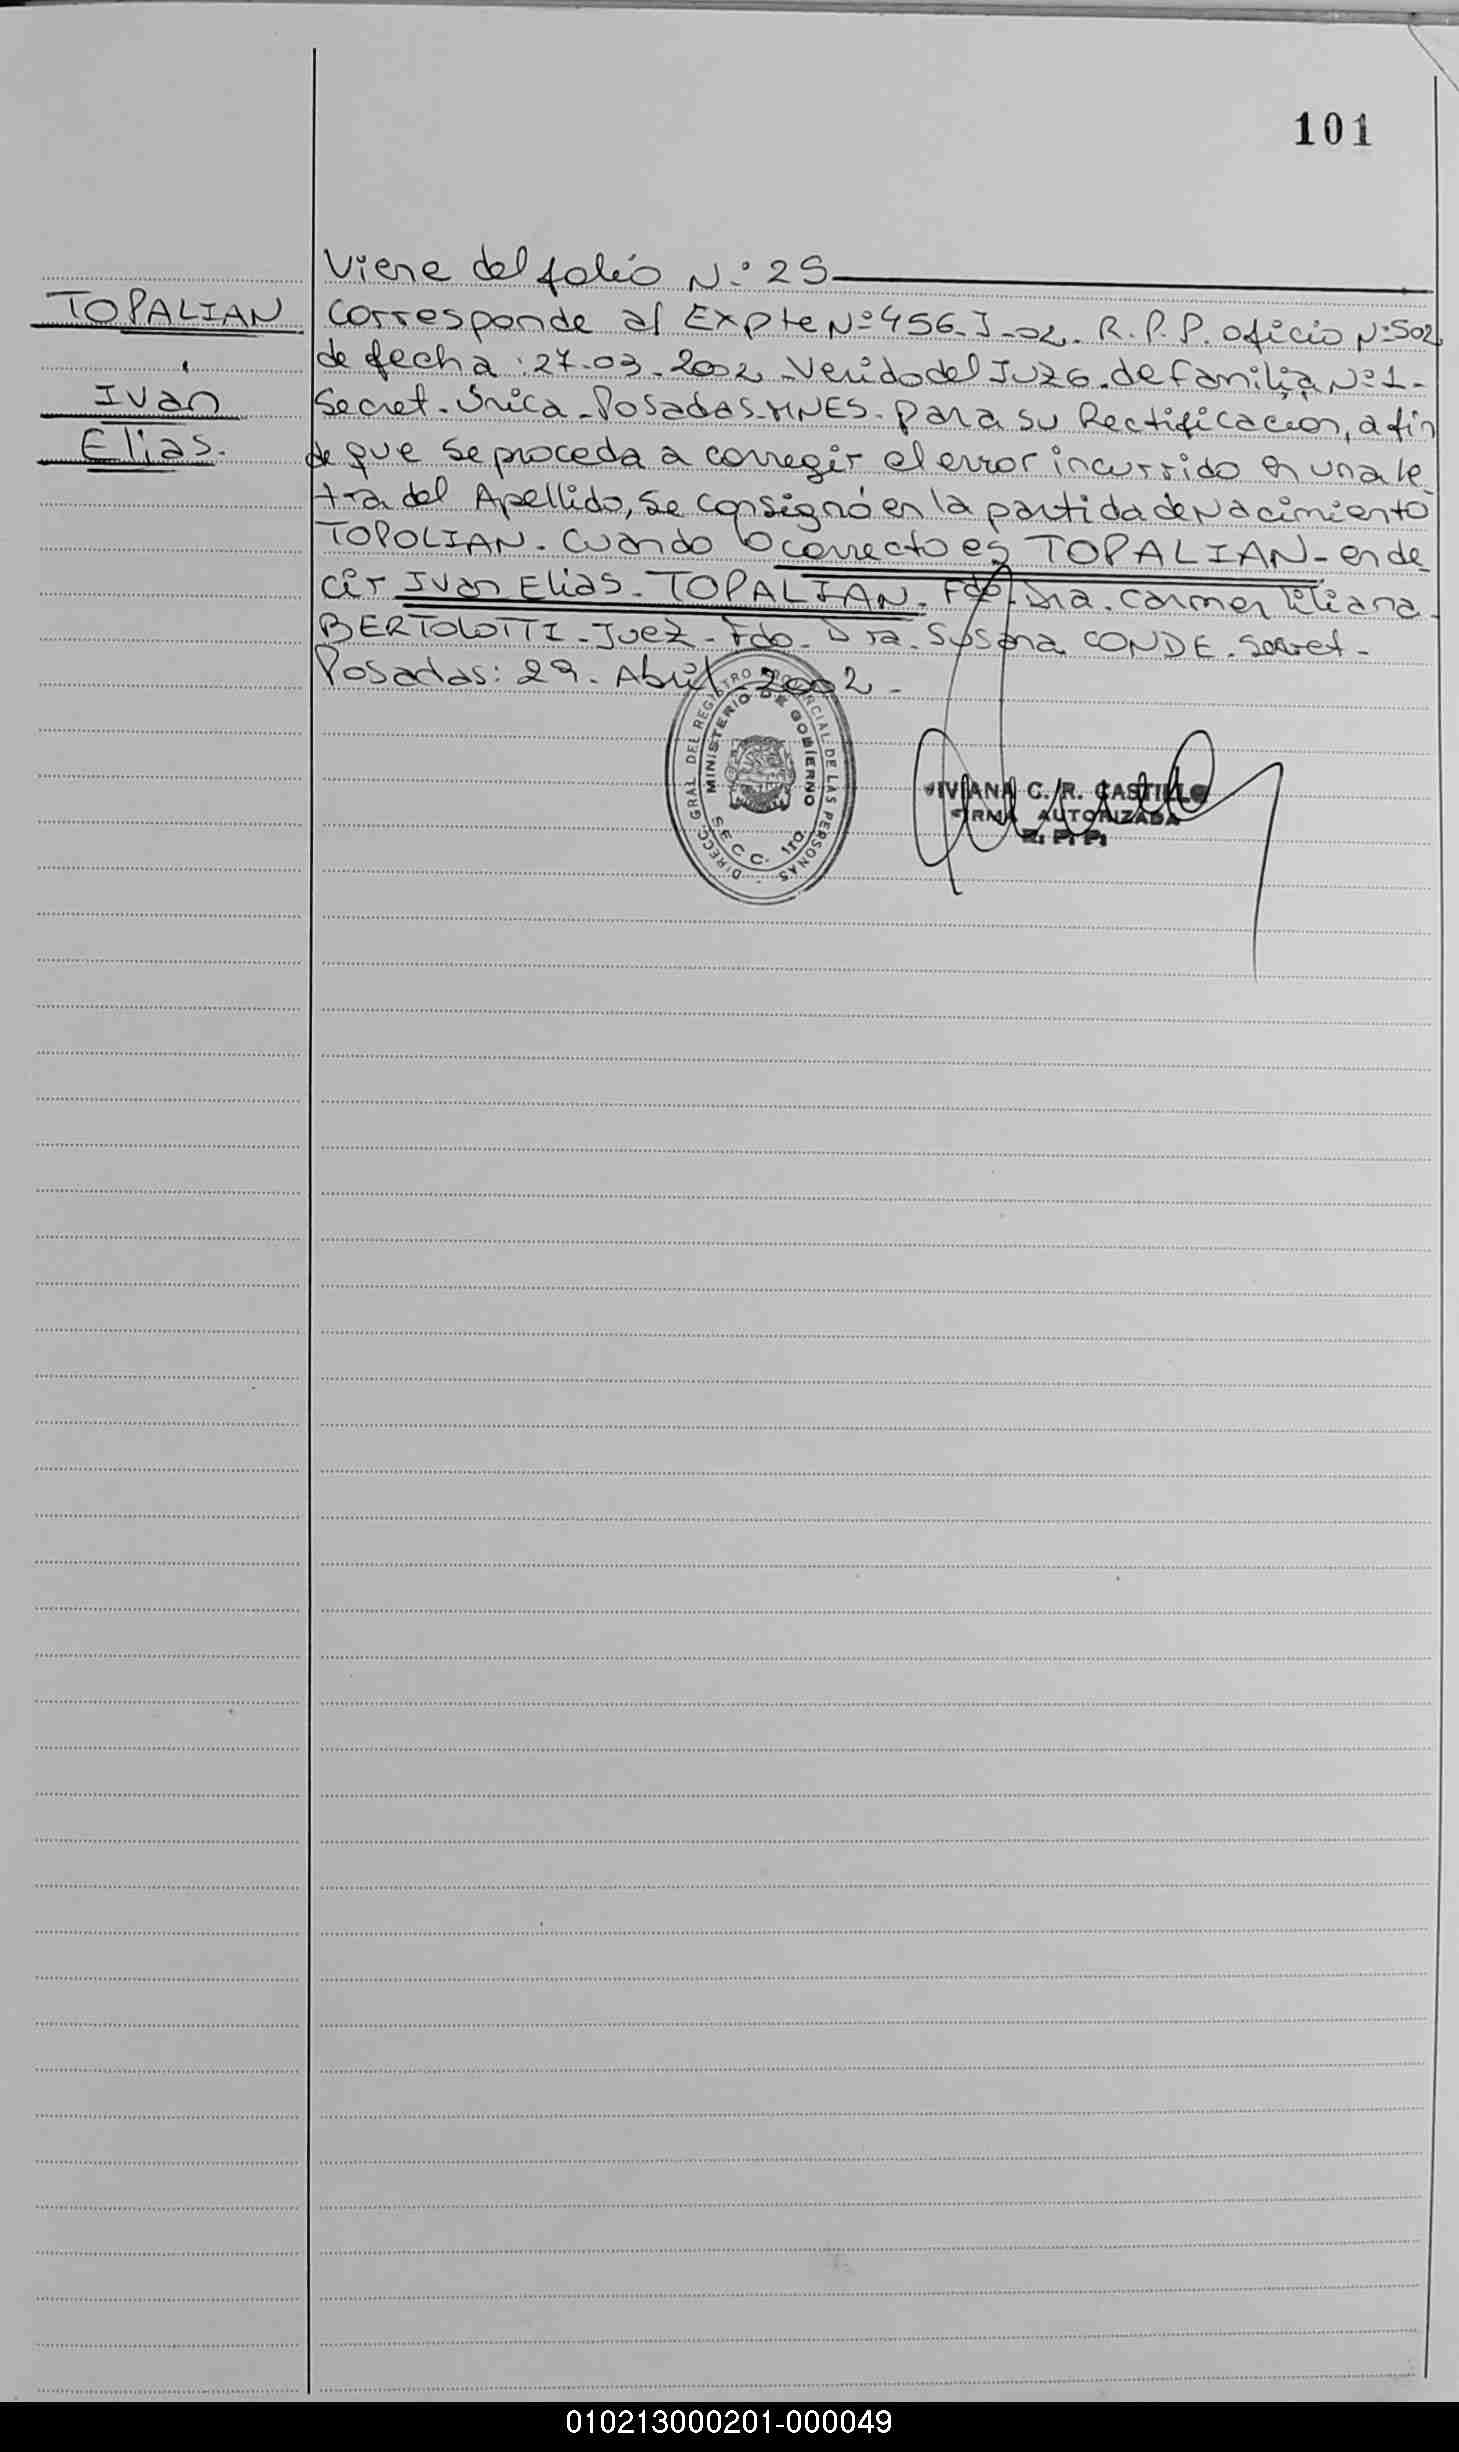 101
Viene del folio N:º 25
TOPALIAN
Ivan
Elias.
Corresponde al Expte Nº 456-J-02. R.P.P. oficio Nº:502
de fecha: 27-03-2002-Venido del JUZG. de familia Nº 1-
Secret. Única-Posadas-MNES-para su Rectificacion, a fin
de que se proceda a corregir el error incurrido en una le-
tra del Apellido, se consignó en la partida de Nacimiento
TOPOLIAN-Cuando lo correcto es TOPALIAN-en de-
cir Ivan Elias-TOPALIAN. Fdo. Dra. Carmen Liliana-
BERTOLOTTI-Juez-Fdo. Dra. Susana CONDE-Secret-
Posadas: 29-Abril-2002-
DIRECC. GRAL DEL REGISTRO PROVINCIAL DE LAS PERSONAS
MINISTERIO DE GOBIERNO
SECC. 1ro.
VIVIANA C. R. CASTILLO
FIRMA AUTORIZADA
R. P. P.
010213000201-000049